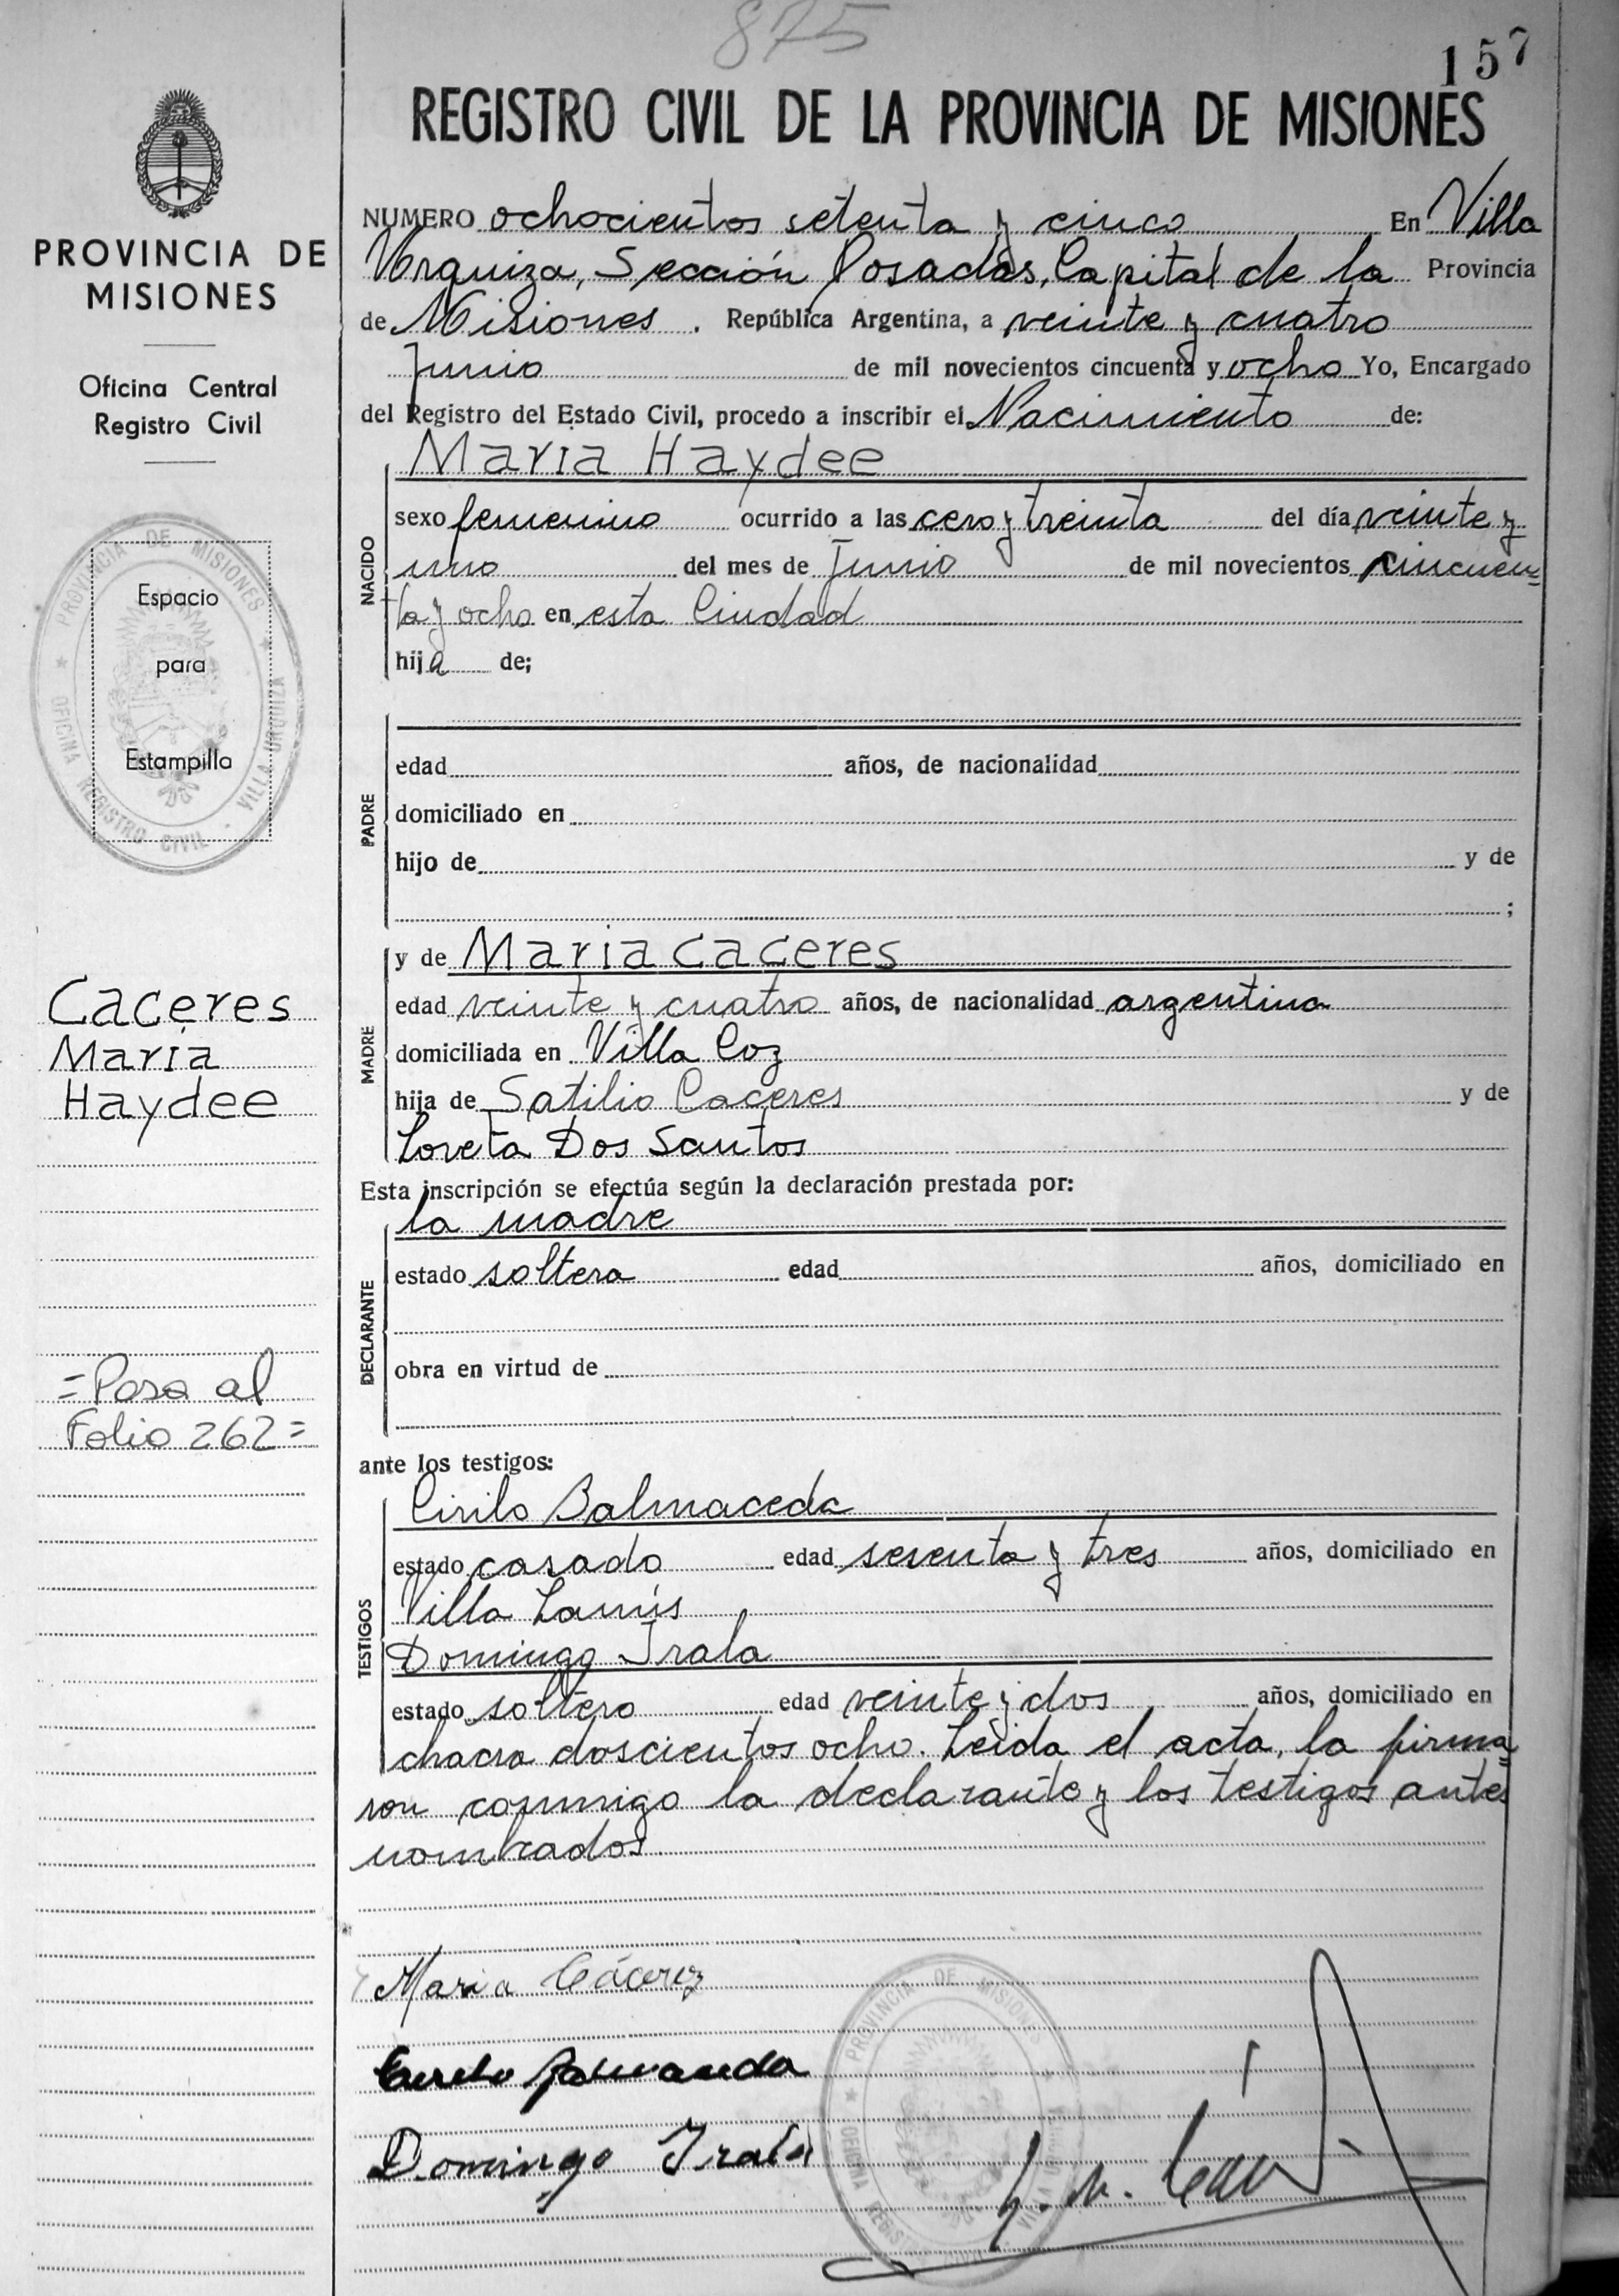 875
157
REGISTRO CIVIL DE LA PROVINCIA DE MISIONES
PROVINCIA DE
MISIONES
Oficina Central
Registro Civil
PROVINCIA DE MISIONES
OFICINA REGISTRO CIVIL - VILLA URQUIZA
Espacio
para
Estampilla
Caceres
Maria
Haydee
=Pasa al
Folio 262=
NUMERO ochocientos setenta y cinco En Villa
Urquiza, Sección Posadas, Capital de la Provincia
de Misiones. República Argentina, a veinte y cuatro
Junio de mil novecientos cincuenta y ocho Yo, Encargado
del Registro del Estado Civil, procedo a inscribir el Nacimiento de:
NACIDO
Maria Haydee
sexo femenino ocurrido a las cero y treinta del día veinte y
uno del mes de Junio de mil novecientos cincuen=
ta y ocho en esta Ciudad
hija de;
PADRE
edad años, de nacionalidad
domiciliado en
hijo de y de
;
MADRE
y de Maria Caceres
edad veinte y cuatro años, de nacionalidad argentina
domiciliada en Villa Coz
hija de Satilio Caceres y de
Loreta Dos Santos
Esta inscripción se efectúa según la declaración prestada por:
DECLARANTE
la madre
estado soltera edad años, domiciliado en
obra en virtud de
ante los testigos:
TESTIGOS
Cirilo Balmaceda
estado casado edad sesenta y tres años, domiciliado en
Villa Lanús
Domingo Irala
estado soltero edad veinte y dos años, domiciliado en
chacra doscientos ocho. Leida el acta, la firma=
ron conmigo la declarante y los testigos antes
nombrados
Maria Cácerez
Cirilo Balmaceda
Domingo Irala
PROVINCIA DE MISIONES
OFICINA REGIS VILLA URQUIZA